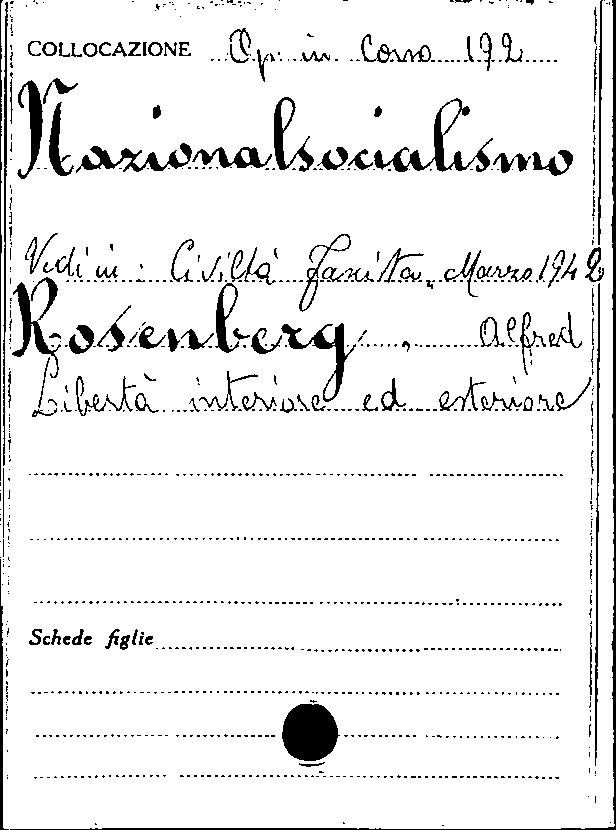 COLLOCAZIONE Op. in Corso 192
Nazionalsocialismo
Vedi in: Civiltà Fascista, Marzo 1942
Rosenberg, Alfred
Libertà interiore ed esteriore
Schede figlie